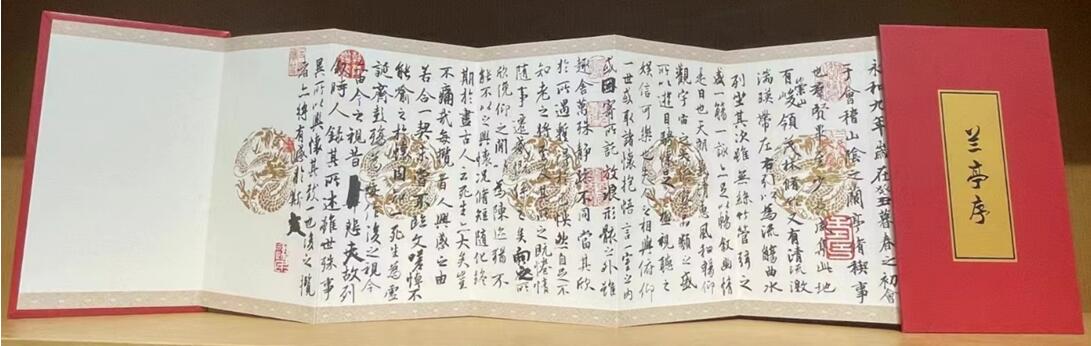 兰亭序
永和九年歲在癸丑暮春之初會
于會稽山陰之蘭亭脩稧事
也羣賢畢至少長咸集此地
有崇山峻領茂林脩竹又有清流激
湍暎帶左右引以為流觴曲水
列坐其次雖無絲竹管弦之
盛一觴一詠亦足以暢敘幽情
是日也天朗氣清惠風和暢仰
觀宇宙之大俯察品類之盛
所以遊目騁懷足以極視聽之
娛信可樂也夫人之相與俯仰
一世或取諸懷抱悟言一室之內
或因寄所託放浪形骸之外雖
趣舍萬殊靜躁不同當其欣
於所遇蹔得於己怏然自足不
知老之將至及其所之既惓情
隨事遷感慨係之矣向之所
欣俛仰之閒以為陳迹猶不
能不以之興懷況脩短隨化終
期於盡古人云死生亦大矣豈
不痛哉每攬昔人興感之由
若合一契未嘗不臨文嗟悼不
能喻之於懷固知一死生為虛
誕齊彭殤為妄作後之視今
亦由今之視昔悲夫故列
敘時人錄其所述雖世殊事
異所以興懷其致一也後之攬
者亦將有感於斯文